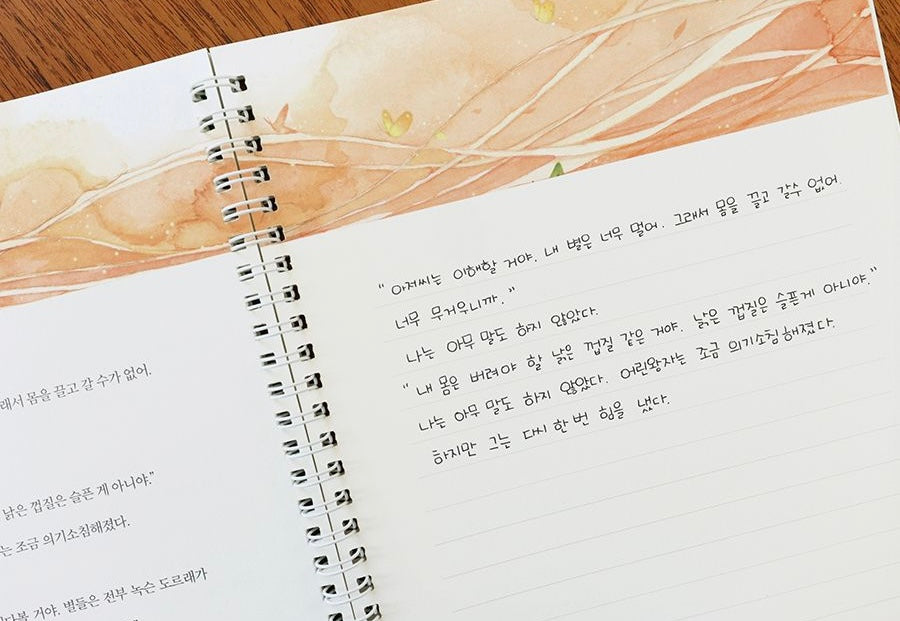 래서 몸을 끌고 갈 수가 없어.
낡은 껍질은 슬픈 게 아니야.”
는 조금 의기소침해졌다.
거야. 별들은 전부 녹슨 도르래가
“아저씨는 이해할 거야. 내 별은 너무 멀어. 그래서 몸을 끌고 갈수 없어.
너무 무거우니까.”
나는 아무 말도 하지 않았다.
“내 몸은 버려야 할 낡은 껍질 같은 거야. 낡은 껍질은 슬픈게 아니야.”
나는 아무 말도 하지 않았다. 어린왕자는 조금 의기소침해졌다.
하지만 그는 다시 한 번 힘을 냈다.